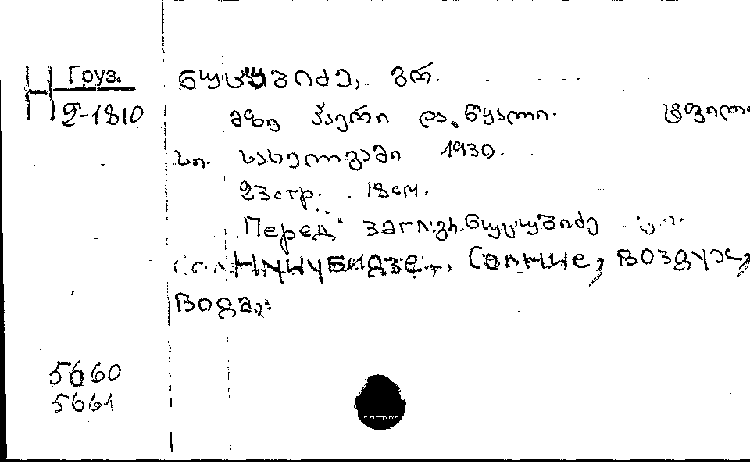 Груз. ნუცუბიძე, გრ.
Н 2-1810 მზე ჰაერი და წყალი. ტფილი
სი. სახელგამი 1930.
23 стр. 18 см.
Перед загл. გრ. ნუცუბიძე
НУЦУБИДЗЕ, Солнце, воздух,
вода.
5660
5661